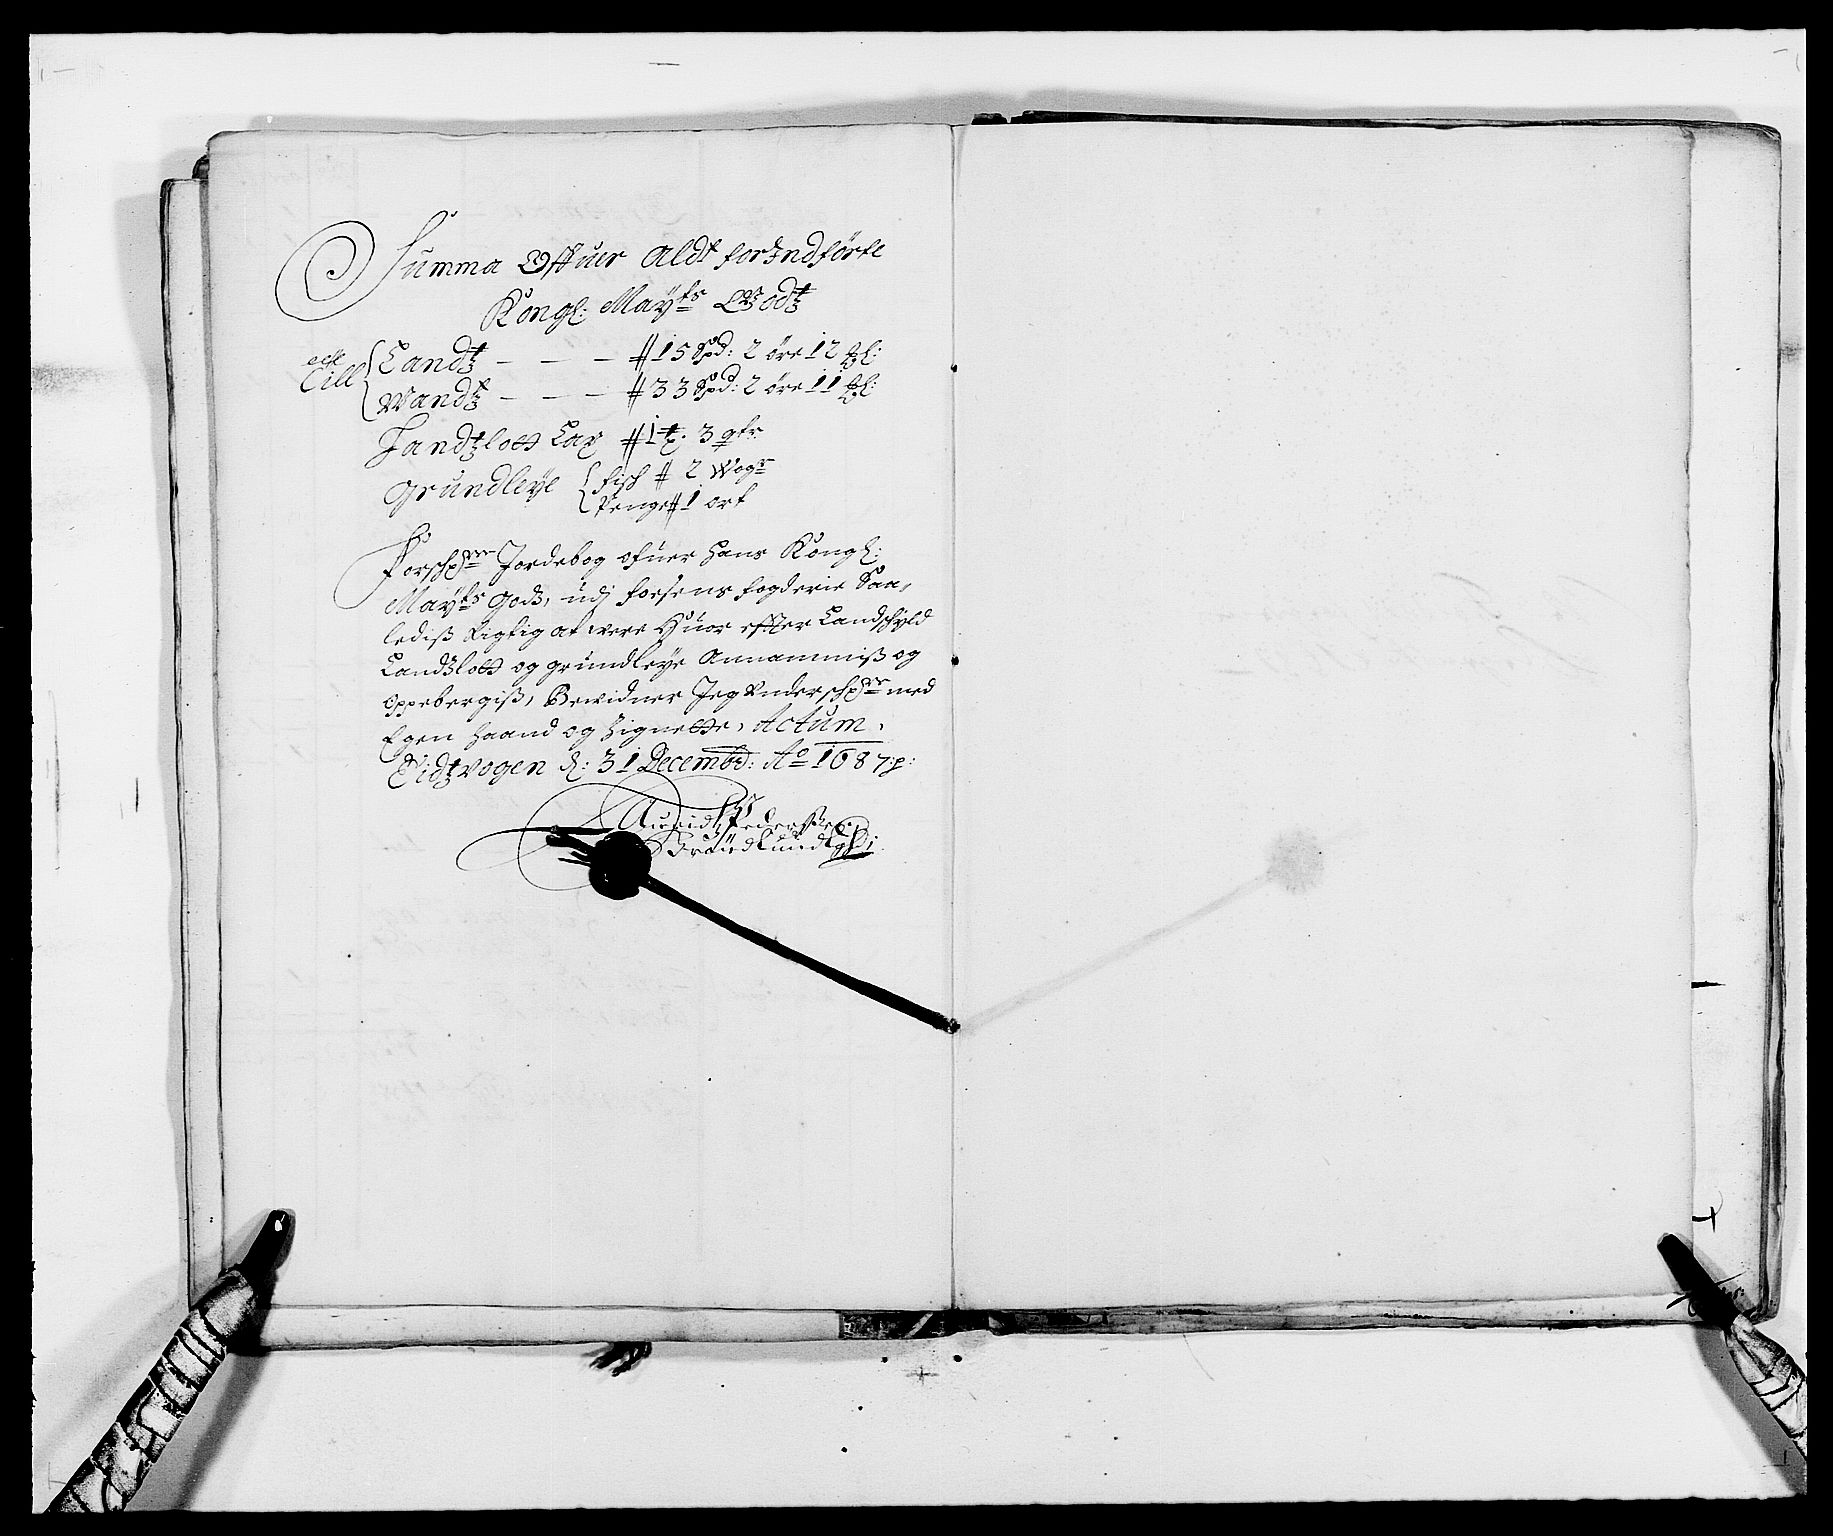 Summa Offuer Aldt forindførte
Kongl: Maÿts Godtz
Till
Landtz - - - # 15 Spd: 2 øre 12 ȝl:
Wandtz - - - # 33 Spd: 2 øre 11 ȝl:
Landtzlott Lax # 1 t. 3 qtr
Grundleÿe
Fisch # 2 Wogr
Penge # 1 ort
Forschrne Jordebog ofuer Hans Kongl:
Maÿts Godtz, udj Foesens fogderie Saa,
lediß Rigtig at were Huor effter Landschÿld
Landtzlott og grundleÿe Annammiß og
oppebergiß, Bewidner Jeg Underschrne med
Egen Haand og Zignette, Actum,
Eidtzvogen d: 31 Decembr: Ao 1687 p:
Auridtz Pederßen